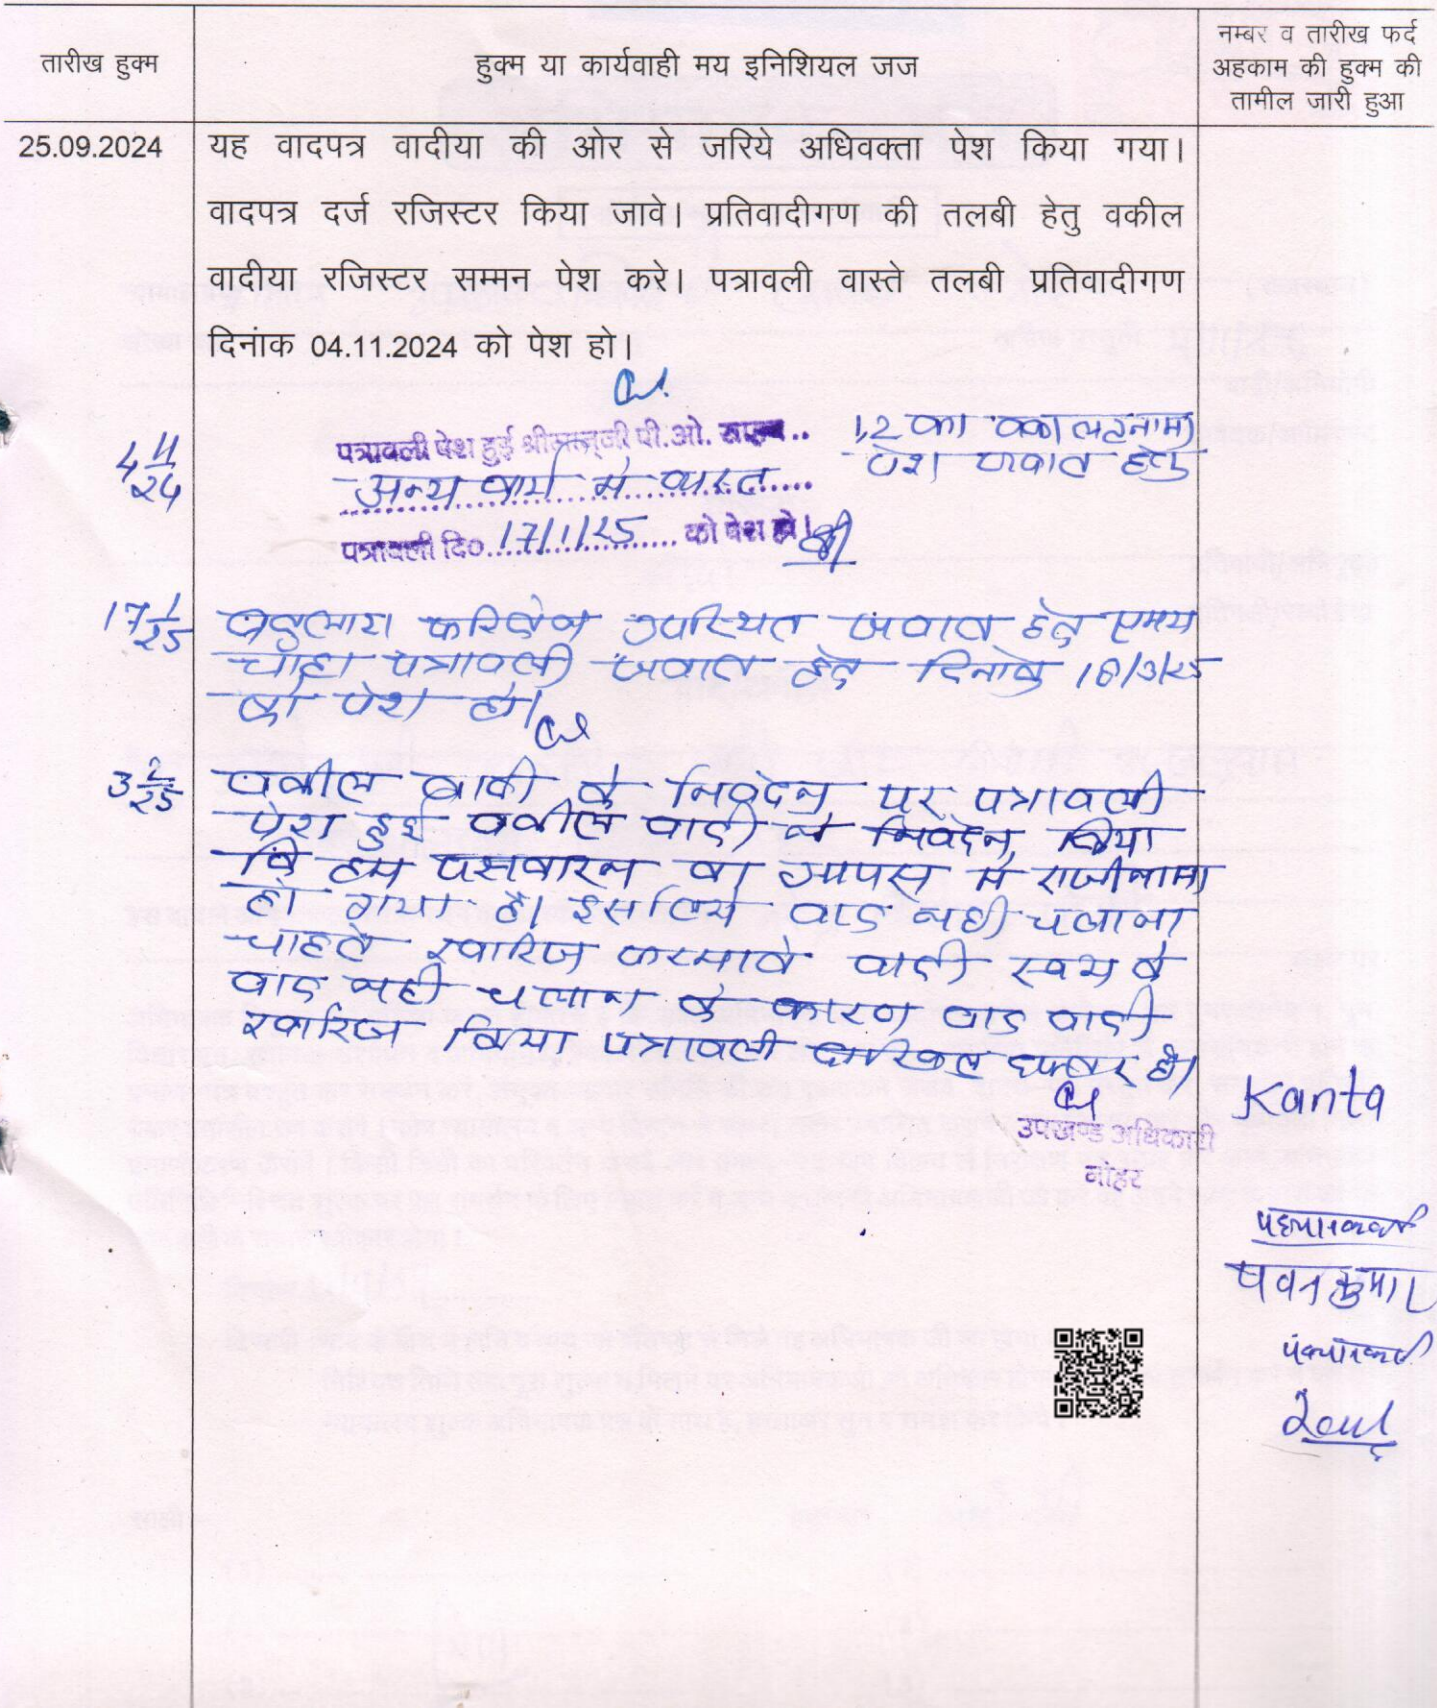 तारीख हुक्म
हुक्म या कार्यवाही मय इनिशियल जज
नम्बर व तारीख फर्द
अहकाम की हुक्म की
तामील जारी हुआ
25.09.2024
यह वादपत्र वादीया की ओर से जरिये अधिवक्ता पेश किया गया।
वादपत्र दर्ज रजिस्टर किया जावे। प्रतिवादीगण की तलबी हेतु वकील
वादीया रजिस्टर सम्मन पेश करे। पत्रावली वास्ते तलबी प्रतिवादीगण
दिनांक 04.11.2024 को पेश हो।
4 11/24
पत्रावली पेश हुई श्रीमान् जी पी.ओ. साहब..
1,2 का वकालतनामा
पेश जवाब हेतु
अन्य कार्य मे व्यस्त
पत्रावली दि० 17/1/25 को पेश हो।
17 1/25
उपस्थित जवाब हेतु समय
चाहा पत्रावली जवाब हेतु दिनांक 18/3/25
को पेश हो।
3 2/25
वकील वादी के निवेदन पर पत्रावली
पेश हुई वकील वादी ने निवेदन किया
कि हम पक्षकारन का आपस मे राजीनामा
हो गया है। इसलिये वाद नही चलाना
चाहते खारिज फरमावे वादी स्वयं के
वाद नही चलाने के कारण वाद वादी
खारिज किया पत्रावली दाखिल दफ्तर हो।
उपखण्ड अधिकारी
नोहर
Kanta
पवन कुमार